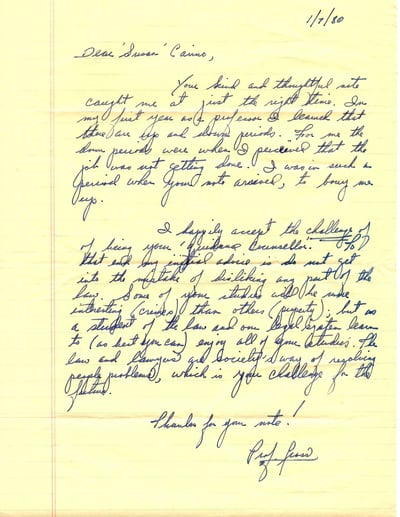 1/7/80
Dear "Susan" Carino,
Your kind and thoughtful note
caught me at just the right time. In
my first year as a professor I learned that
there are up and down periods. For me the
down periods were when I perceived that the
job was not getting done. I was in such a
period when your note arrived, to buoy me
up.
I happily accept the challenge of
of being your "Guidance Counsellor." To
that end my initial advice is do not get
into the mistake of disliking any part of the
law. Some of your studies will be more
interesting (crimes) than others (property); but as
a student of the law and our legal system learn
to (as best you can) enjoy all of your studies. The
law and lawyers are society's way of resolving
people problems, which is your challenge for the
future.
Thanks for your note!
Prof.